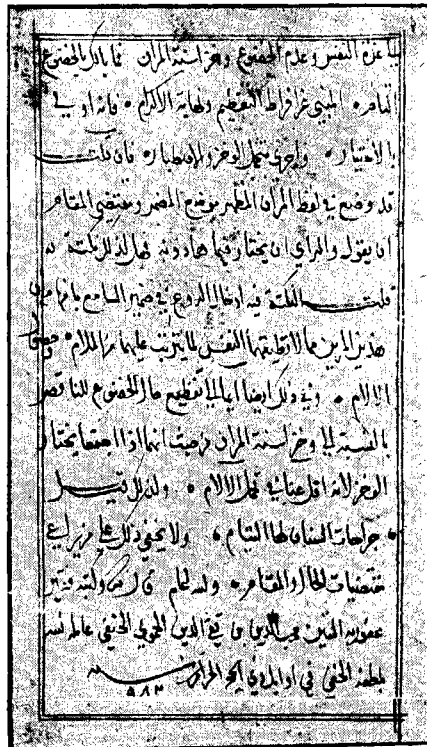 عزة النفس وعدم الخضوع وخز اسنة المران فما بالك بالخضوع
التام المبني عن افراط التعظيم ونهاية الاكرام فانه اولى
بالاختيار واحرى بتحمل الوخز والاصطبار فان قلت
قد وضع في لفظ المران المظهر موضع المضمر ومقتضى المقام
ان يقول والمراي ان يختار فيها هلا دونه فهل لذلك نكتة
قلت النكتة فيه ادخال الروع في ضمير السامع
هذين الامرين مما لا تطيقها النفس لما يترتب عليهما من الملام
الالام وفي ذلك ايضا ايماء الى تعظيم حال الخضوع للناقص
بالنسبة الى وخز اسنة المران من حيث انها اذا اجتمعا يختار
الوخز لانه اقل عناء في تحمل الالام ولذلك قيل
جراحات السنان لها التيام ولا يخفى ذلك على من يراعي
مقتضيات الحال والمقام والله اعلم قال وكتبه فقير
عفو ربه محب الدين بن تقي الدين الحموي الحنفي عامله الله
بلطفه الخفي في اوايل ذي الحجة الحرام سنة
٩٨٣